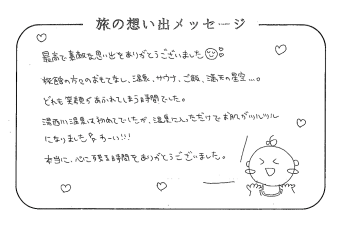 旅の想い出メッセージ
最高で素敵な思い出をありがとうございました
旅館の方々のおもてなし、温泉、サウナ、ご飯、満天の星空…。
どれも笑顔があふれてしまう時間でした。
湯西川温泉は初めてでしたが、温泉に入っただけでお肌がツルツル
になりました わーい!!!
本当に、心に残る時間をありがとうございました。